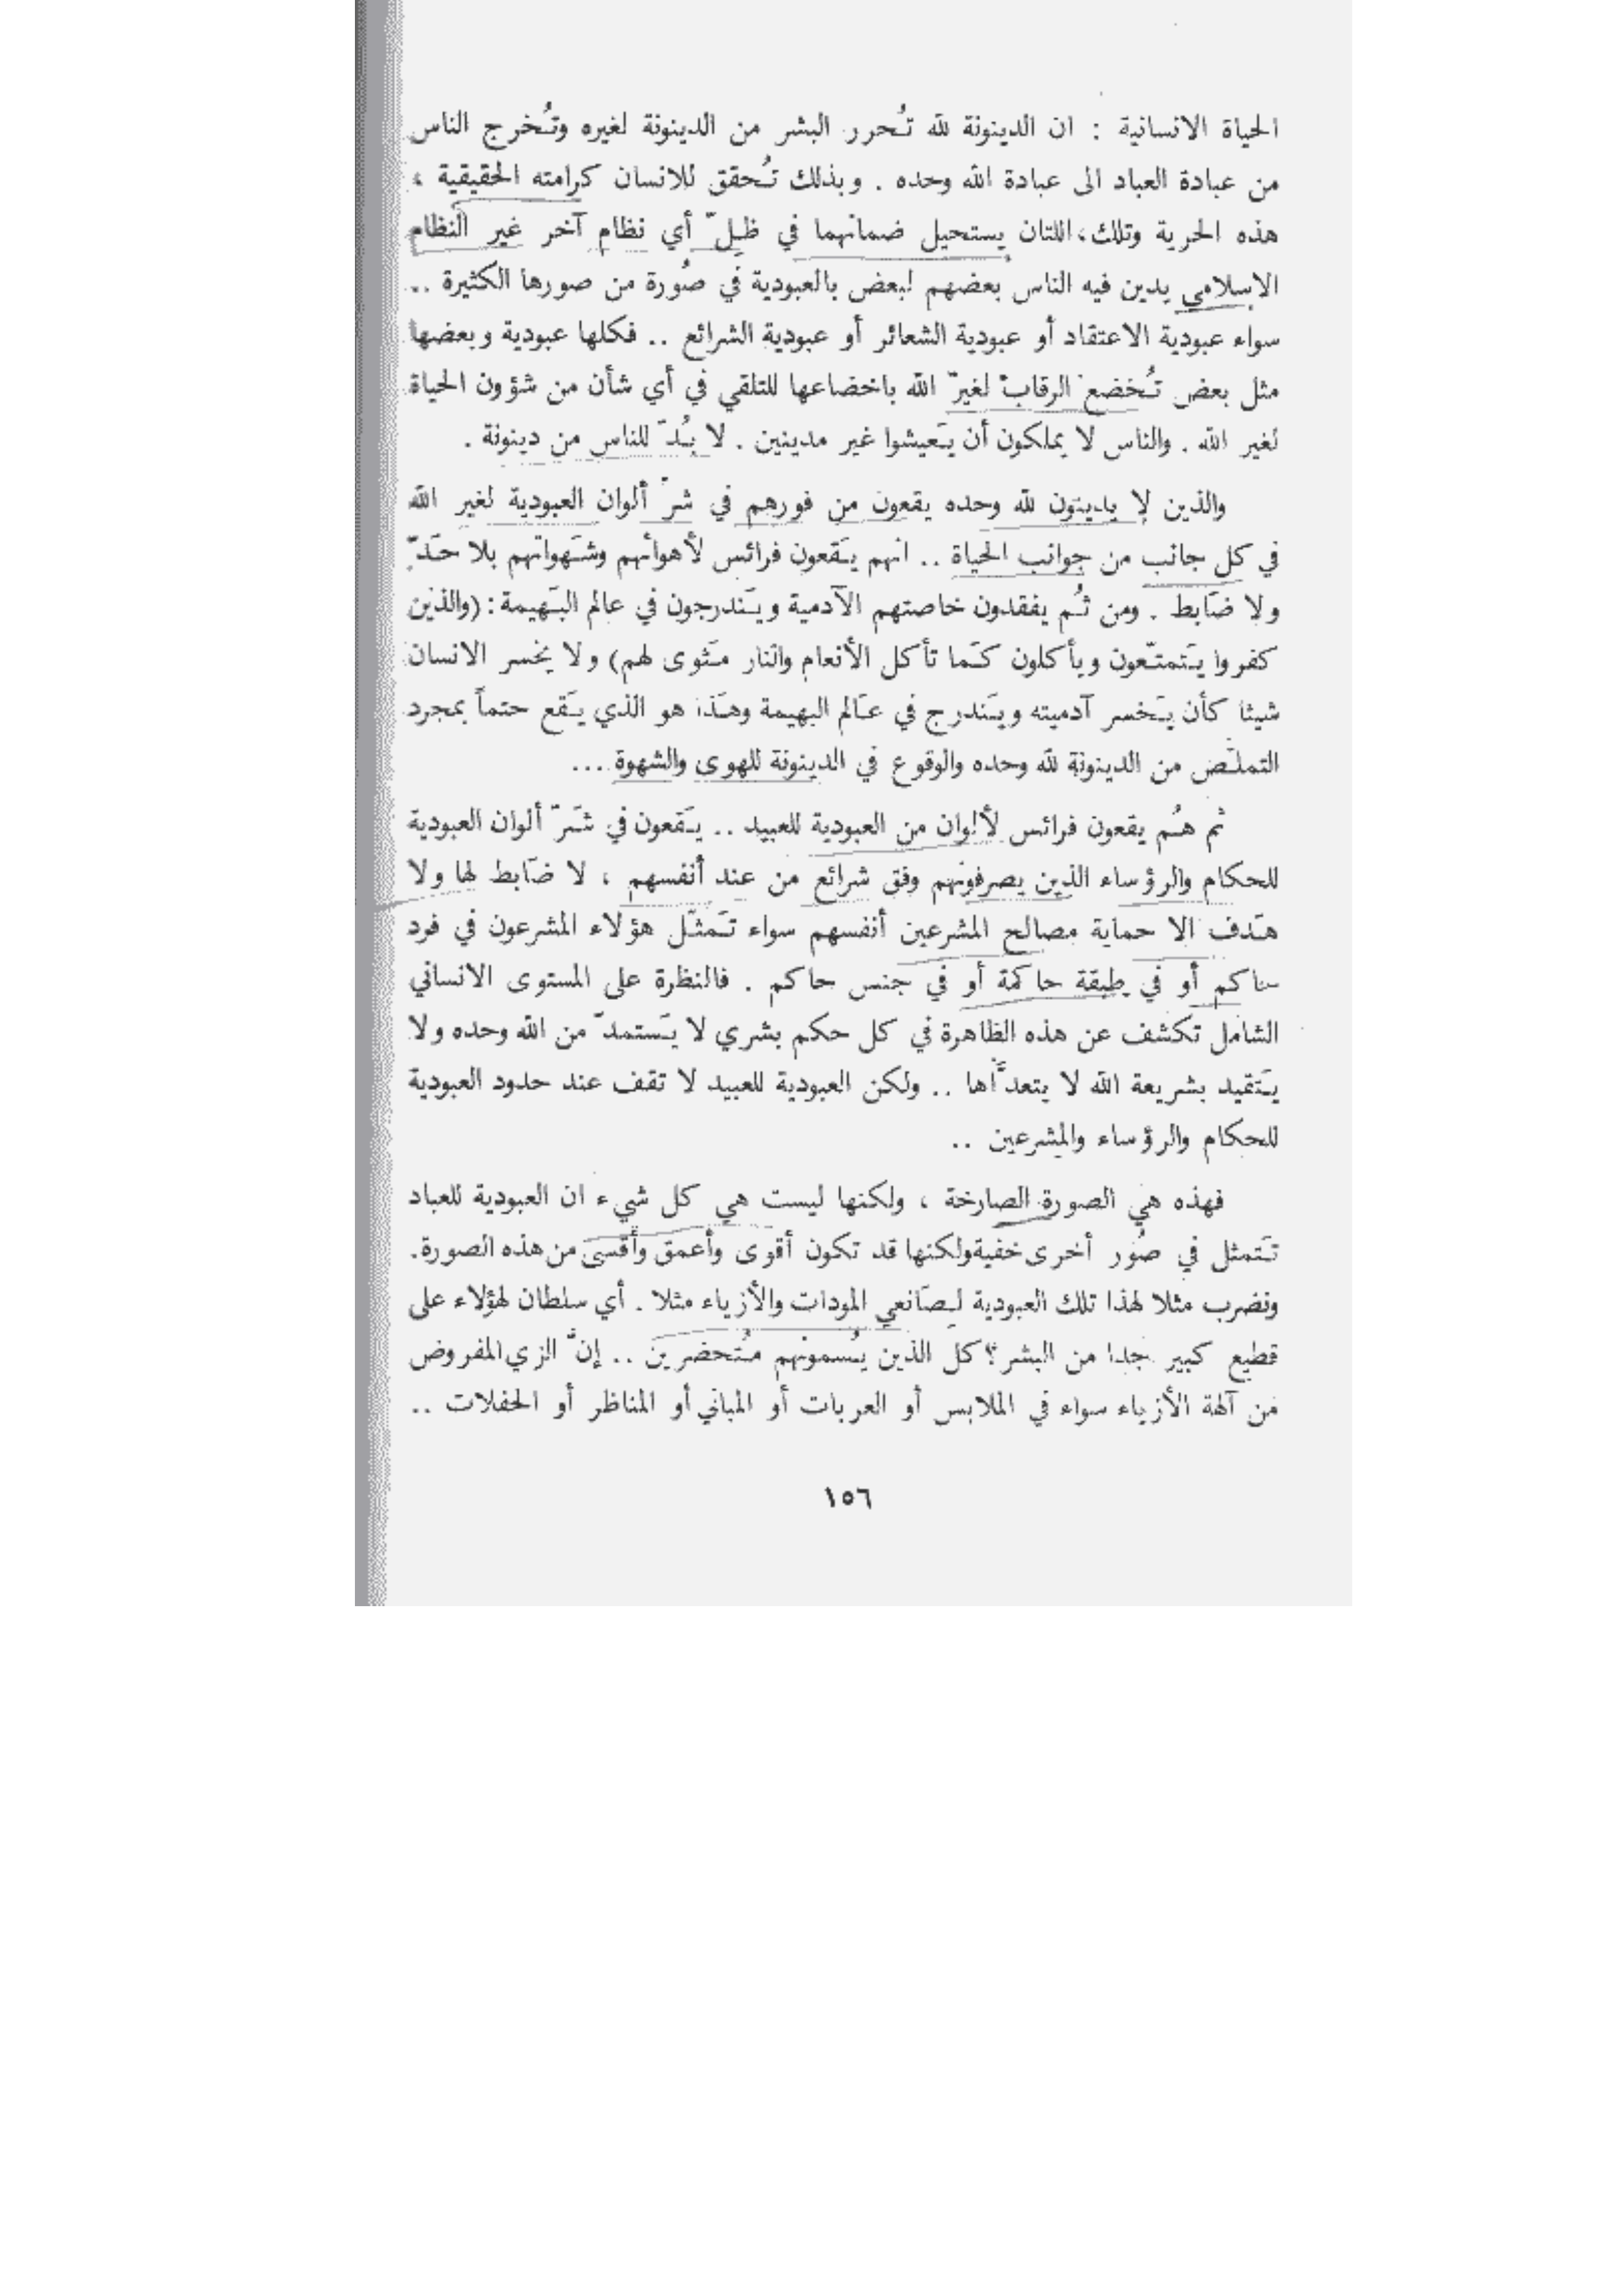 الحياة الانسانية : ان الدينونة لله تُحرر البشر من الدينونة لغيره وتُخرج الناس
من عبادة العباد الى عبادة الله وحده . وبذلك تُحقق للانسان كرامته الحقيقية ،
هذه الحرية وتلك، اللتان يستحيل ضمانهما في ظلّ أي نظام آخر غير النظام
الاسلامي يدين فيه الناس بعضهم لبعض بالعبودية في صُورة من صورها الكثيرة ..
سواء عبودية الاعتقاد أو عبودية الشعائر أو عبودية الشرائع .. فكلها عبودية وبعضها
مثل بعض تُخضع الرقاب لغير الله باخضاعها للتلقي في أي شأن من شؤون الحياة
لغير الله . والناس لا يملكون أن يَعيشوا غير مدينين . لا بُدّ للناس من دينونة .
والذين لا يدينون لله وحده يقعون من فورهم في شرّ ألوان العبودية لغير الله
في كل جانب من جوانب الحياة .. انهم يَقعون فرائس لأهوائهم وشَهواتهم بلا حَدّ
ولا ضَابط . ومن ثُم يفقدون خاصتهم الآدمية ويَندرجون في عالم البَهيمة : (والذين
كفروا يَتمتّعون ويأكلون كَما تأكل الأنعام والنار مَثوى لهم) ولا يخسر الانسان
شيئا كأن يَخسر آدميته ويَندرج في عَالم البهيمة وهَذا هو الذي يَقع حتماً بمجرد
التملّص من الدينونة لله وحده والوقوع في الدينونة للهوى والشهوة ...
ثم هُم يقعون فرائس لألوان من العبودية للعبيد .. يَقعون في شَرّ ألوان العبودية
للحكام والرؤساء الذين يصرفونهم وفق شرائع من عند أنفسهم ، لا ضَابط لها ولا
هَدف الا حماية مصالح المشرعين أنفسهم سواء تَمثّل هؤلاء المشرعون في فرد
حاكم أو في طبقة حاكمة أو في جنس حاكم . فالنظرة على المستوى الانساني
الشامل تكشف عن هذه الظاهرة في كل حكم بشري لا يَستمدّ من الله وحده ولا
يَتقيد بشريعة الله لا يتعدّاها .. ولكن العبودية للعبيد لا تقف عند حدود العبودية
للحكام والرؤساء والمشرعين ..
فهذه هي الصورة الصارخة ، ولكنها ليست هي كل شيء ان العبودية للعباد
تَتمثل في صُور أخرى خفية ولكنها قد تكون أقوى وأعمق وأقسى من هذه الصورة.
ونضرب مثلا لهذا تلك العبودية لصَانعي المودات والأزياء مثلا . أي سلطان لهؤلاء على
قطيع كبير جدا من البشر ؟ كل الذين يُسمونهم مُتحضرين .. إنّ الزي المفروض
من آلهة الأزياء سواء في الملابس أو العربات أو المباني أو المناظر أو الحفلات ..
١٥٦